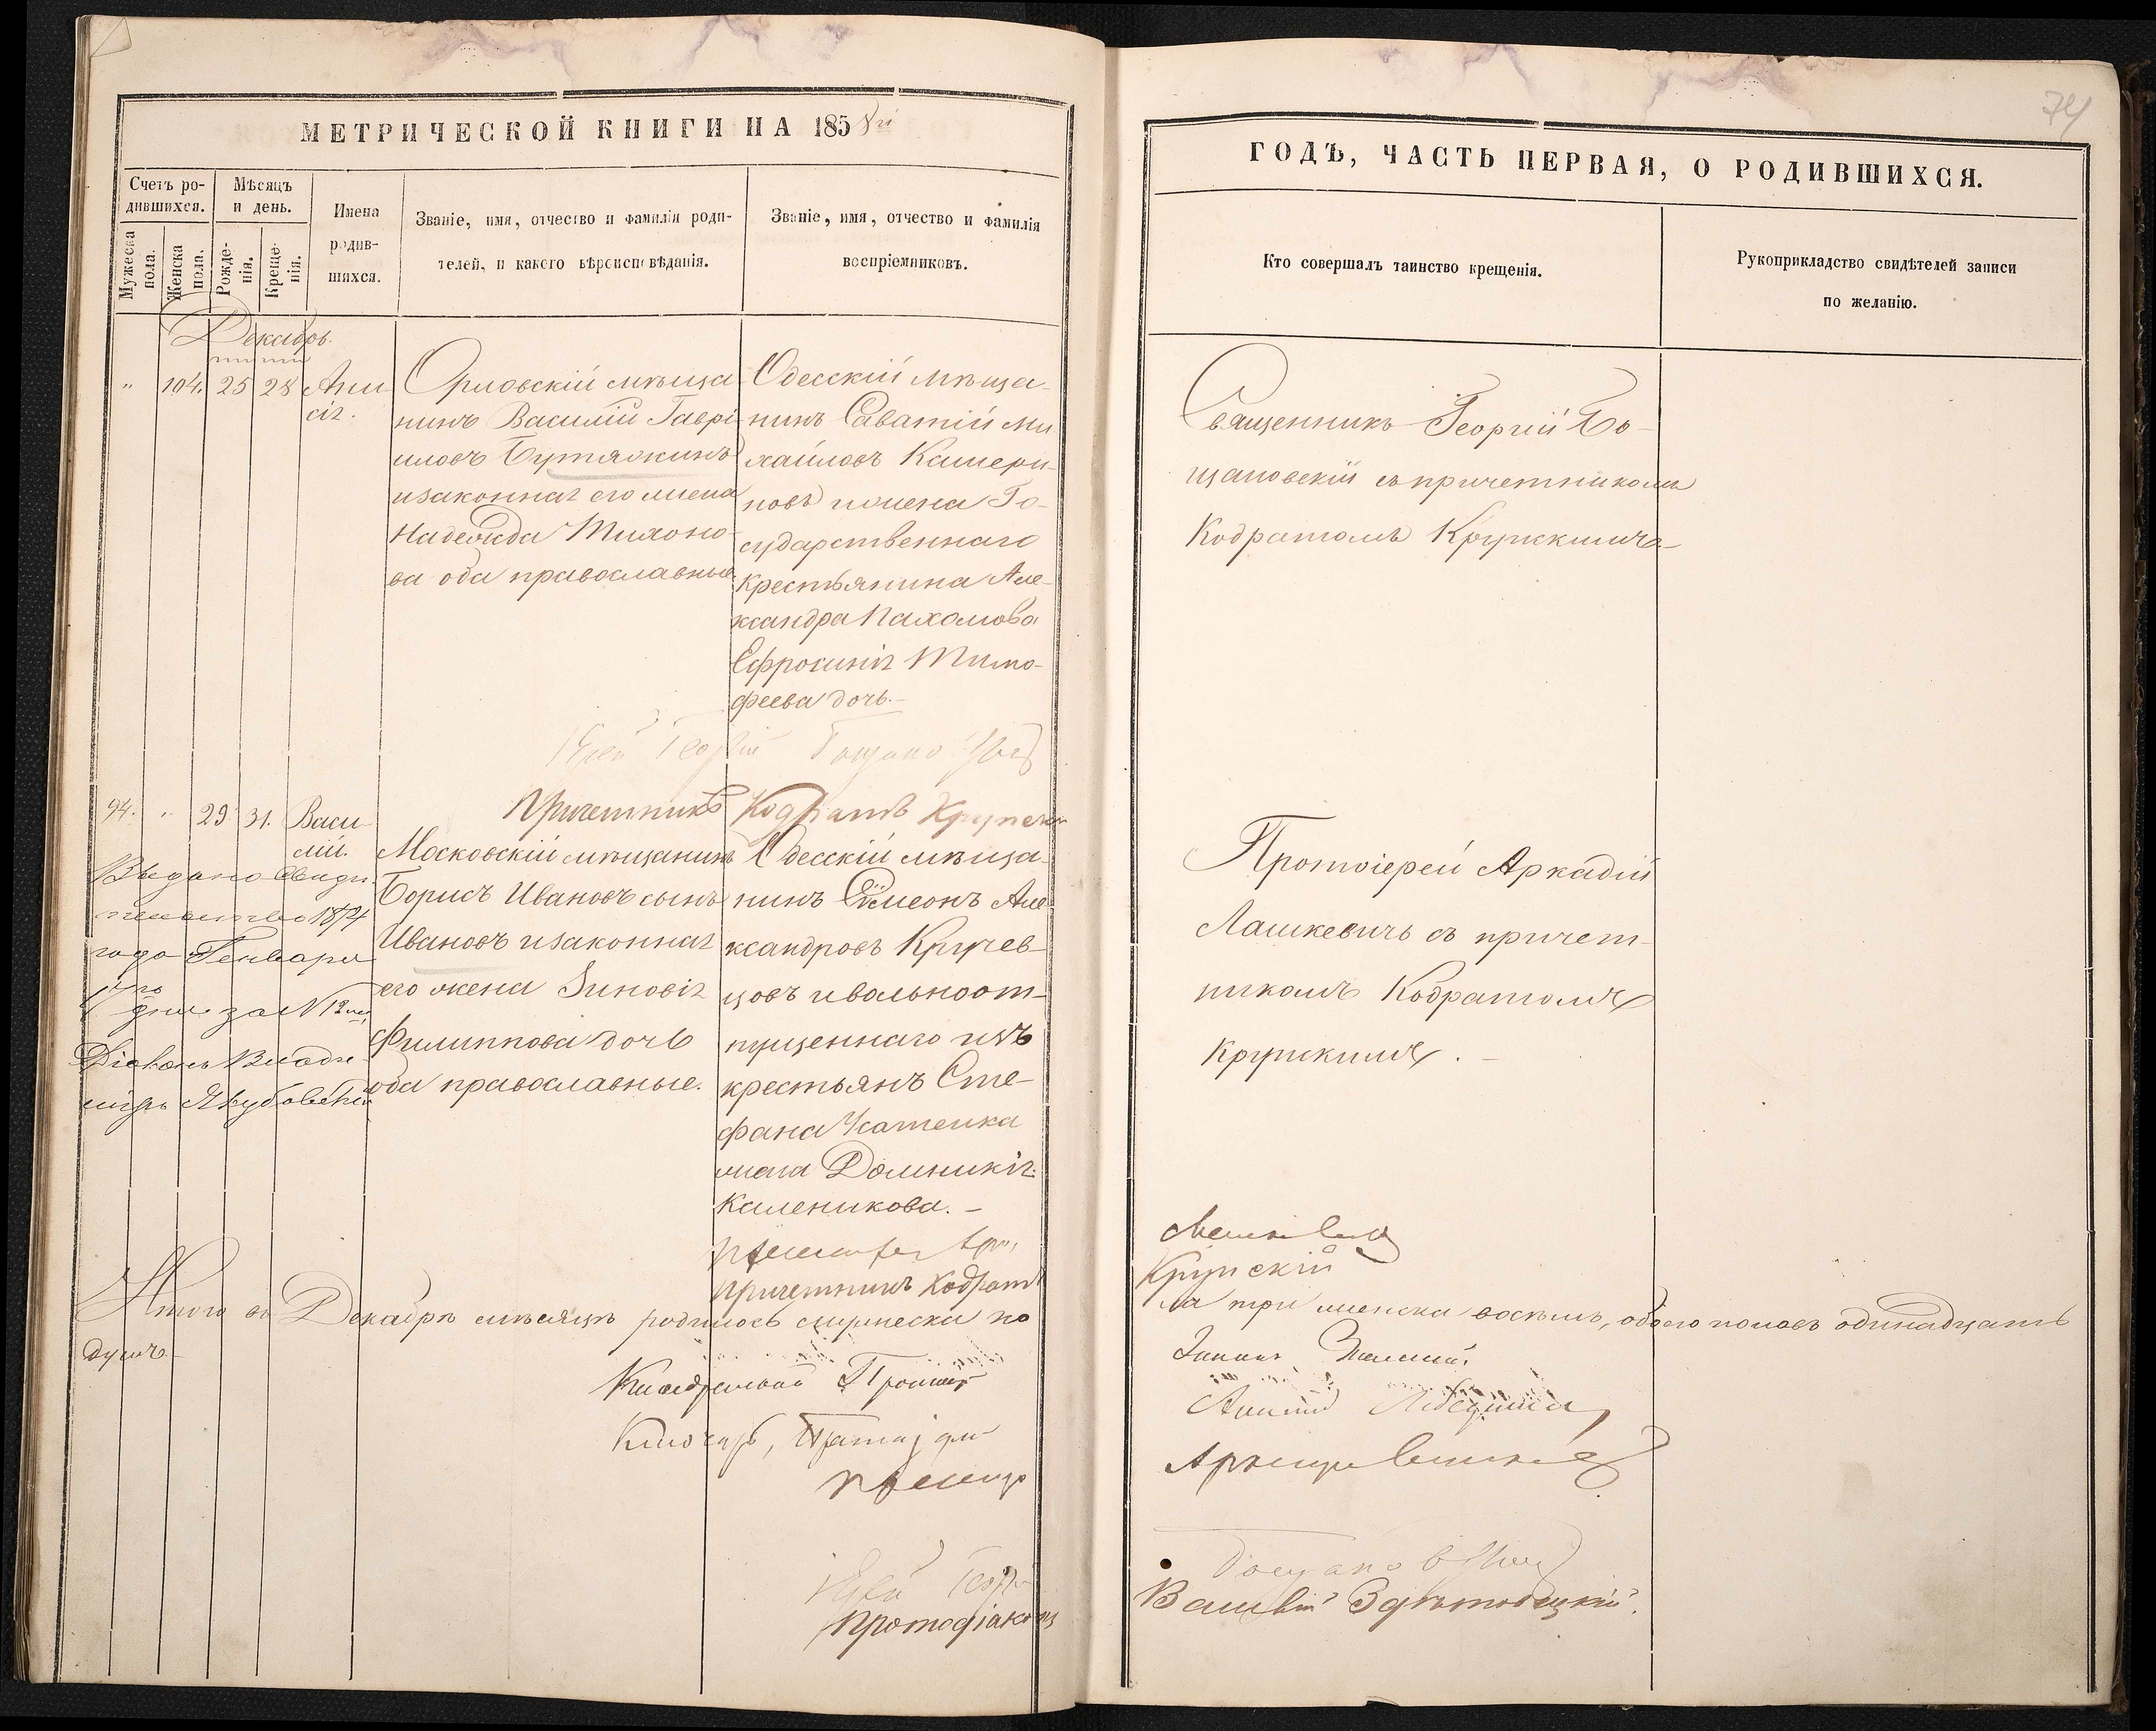 МЕТРИЧЕСКОЙ КНИГИ НА 1858й
Счетъ ро-
дившихся.
Мѣсяцъ
и день.
Имена
родив-
шихся.
Званіе, имя, отчество и фамилія роди-
телей, и какого вѣроисповѣданія.
Званіе, имя, отчество и фамилія
воспріемниковъ.
Мужеска
пола.
Женска
пола.
Рожде-
нія.
Креще-
нія.
Декабрь.
" 104. 25 28
Орловскій мѣща-
нинъ Василій Гаврі-
иловъ Бутяжкинъ
и законная его жена
Надежда Тихоно-
ва оба православные.
Одесскій мѣща-
нинъ Саватій Ми-
хайловъ Камери-
новъ и жена Го-
сударственнаго
крестьянина Але-
ксандра Пахомова
Ефросинія Тимо-
феева дочь.-
Іерей Георгій
Причетникъ Кодратъ Крупскій
94. " 29 31. Васи-
лій.
Московскій мѣщанинъ
Борисъ Ивановъ сынъ
Ивановъ и законная
его жена Зиновія
Филиппова дочь
оба православные.
Одесскій мѣща-
нинъ Сѷмеонъ Але-
ксандровъ Кручев-
цовъ и вольноот-
пущеннаго изъ
крестьянъ Сте-
фана Усатенка
жена Домникія
Каленикова. -
Выдано свидѣ-
тельство 1874
года Генваря
дня за N 12мъ
Діаконъ Влади-
миръ Якубовскій
Причетникъ Кодратъ
Итого въ Декабрѣ мѣсяцѣ родилось мужеска по
душъ.
Каѳедральный Протоіерей
Ключарь, Протоіерей
Іерей Георгій
Протодіаконъ
ГОДЪ, ЧАСТЬ ПЕРВАЯ, О РОДИВШИХСЯ.
74
Кто совершалъ таинство крещенія.
Рукоприкладство свидѣтелей записи
по желанію.
Священникъ Георгій Бо-
щановскій съ причетникомъ
Кодратомъ Крупскимъ.
Протоіерей Аркадій
Лашкевичь съ причет-
никомъ Кодратомъ
Крупскимъ. -
Крупскій
ла три женска восемь, обоего половъ одинадцать
Лебединцевъ